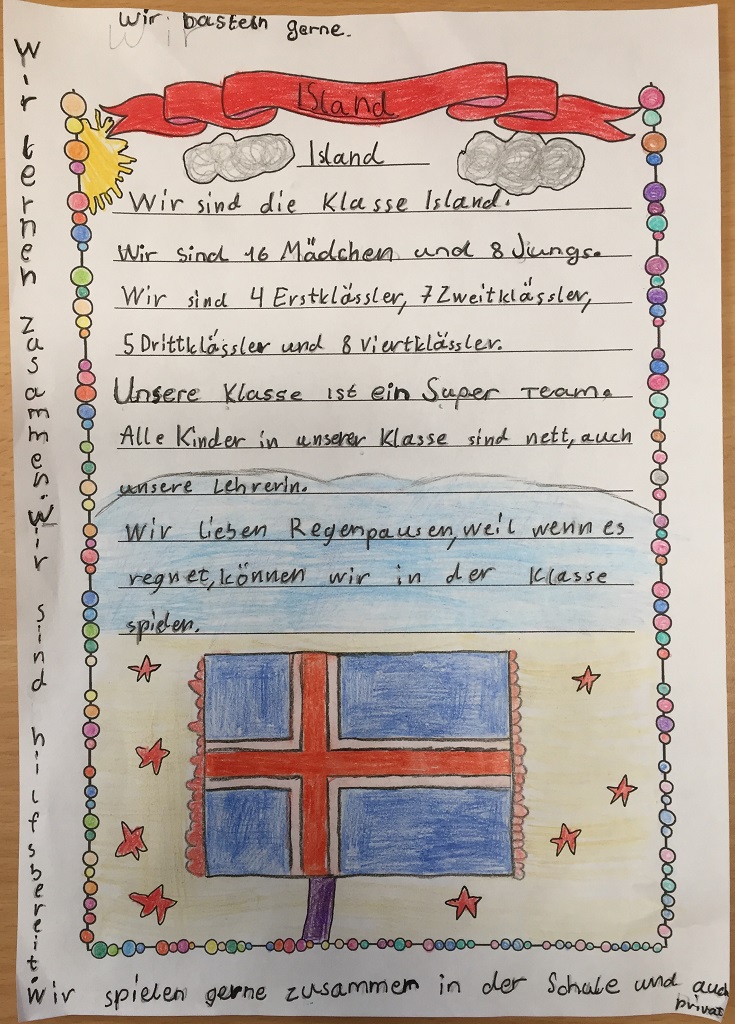 Wir basteln gerne.
Wir
Island
Island
Wir sind die Klasse Island.
Wir sind 16 Mädchen und 8 Jungs.
Wir sind 4 Erstklässler, 7 Zweitklässler,
5 Drittklässler und 8 Viertklässler.
Unsere Klasse ist ein Super Team.
Alle Kinder in unserer Klasse sind nett, auch
unsere Lehrerin.
Wir lieben Regenpausen, weil wenn es
regnet, können wir in der Klasse
spielen.
Wir lernen zusammen. Wir sind hilfsbereit.
Wir spielen gerne zusammen in der Schule und auch
privat